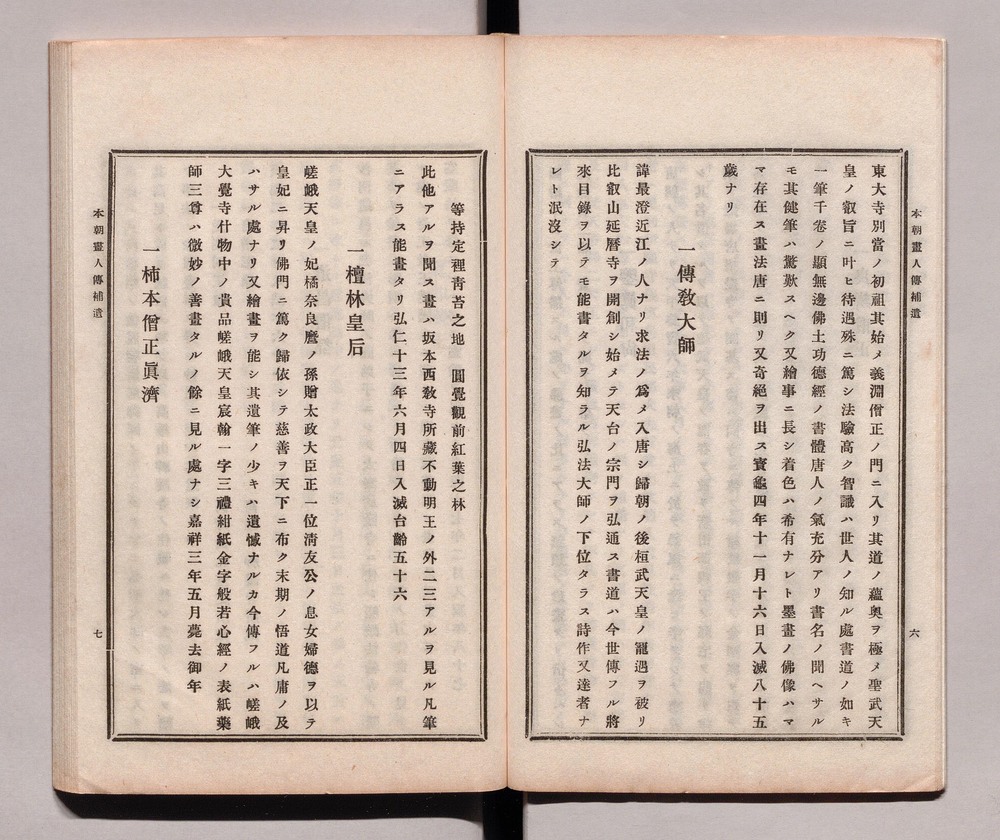 本朝畫人傳補遺
六
東大寺別當ノ初祖其始メ義淵僧正ノ門ニ入リ其道ノ蘊奧ヲ極メ聖武天
皇ノ叡旨ニ叶ヒ待遇殊ニ篤シ法驗高ク智識ハ世人ノ知ル處書道ノ如キ
一筆千卷ノ顯無邊佛土功德經ノ書體唐人ノ氣充分アリ書名ノ聞ヘサル
モ其健筆ハ驚歎スヘク又繪事ニ長シ着色ハ希有ナレト墨畫ノ佛像ハマ
マ存在ス畫法唐ニ則リ又奇絕ヲ出ス寶龜四年十一月十六日入滅八十五
歲ナリ
一傳敎大師
諱最澄近江ノ人ナリ求法ノ爲メ入唐シ歸朝ノ後桓武天皇ノ寵遇ヲ被リ
比叡山延曆寺ヲ開創シ始メテ天台ノ宗門ヲ弘通ス書道ハ今世傳フル將
來目錄ヲ以テモ能書タルヲ知ラル弘法大師ノ下位タラス詩作又達者ナ
レト泯沒シテ
等持定裡靑苔之地 圓覺觀前紅葉之林
此他アルヲ聞ス畫ハ坂本西敎寺所藏不動明王ノ外二三アルヲ見ル凡筆
ニアラス能畫タリ弘仁十三年六月四日入滅台齡五十六
一檀林皇后
嵯峨天皇ノ妃橘奈良麿ノ孫贈太政大臣正一位淸友公ノ息女婦德ヲ以テ
皇妃ニ昇リ佛門ニ篤ク歸依シテ慈善ヲ天下ニ布ク末期ノ悟道凡庸ノ及
ハサル處ナリ又繪畫ヲ能シ其遺筆ノ少キハ遺憾ナルカ今傳フルハ嵯峨
大覺寺什物中ノ貴品嵯峨天皇宸翰一字三禮紺紙金字般若心經ノ表紙藥
師三尊ハ微妙ノ善畫タルノ餘ニ見ル處ナシ嘉祥三年五月薨去御年
一柿本僧正眞濟
本朝畫人傳補遺
七